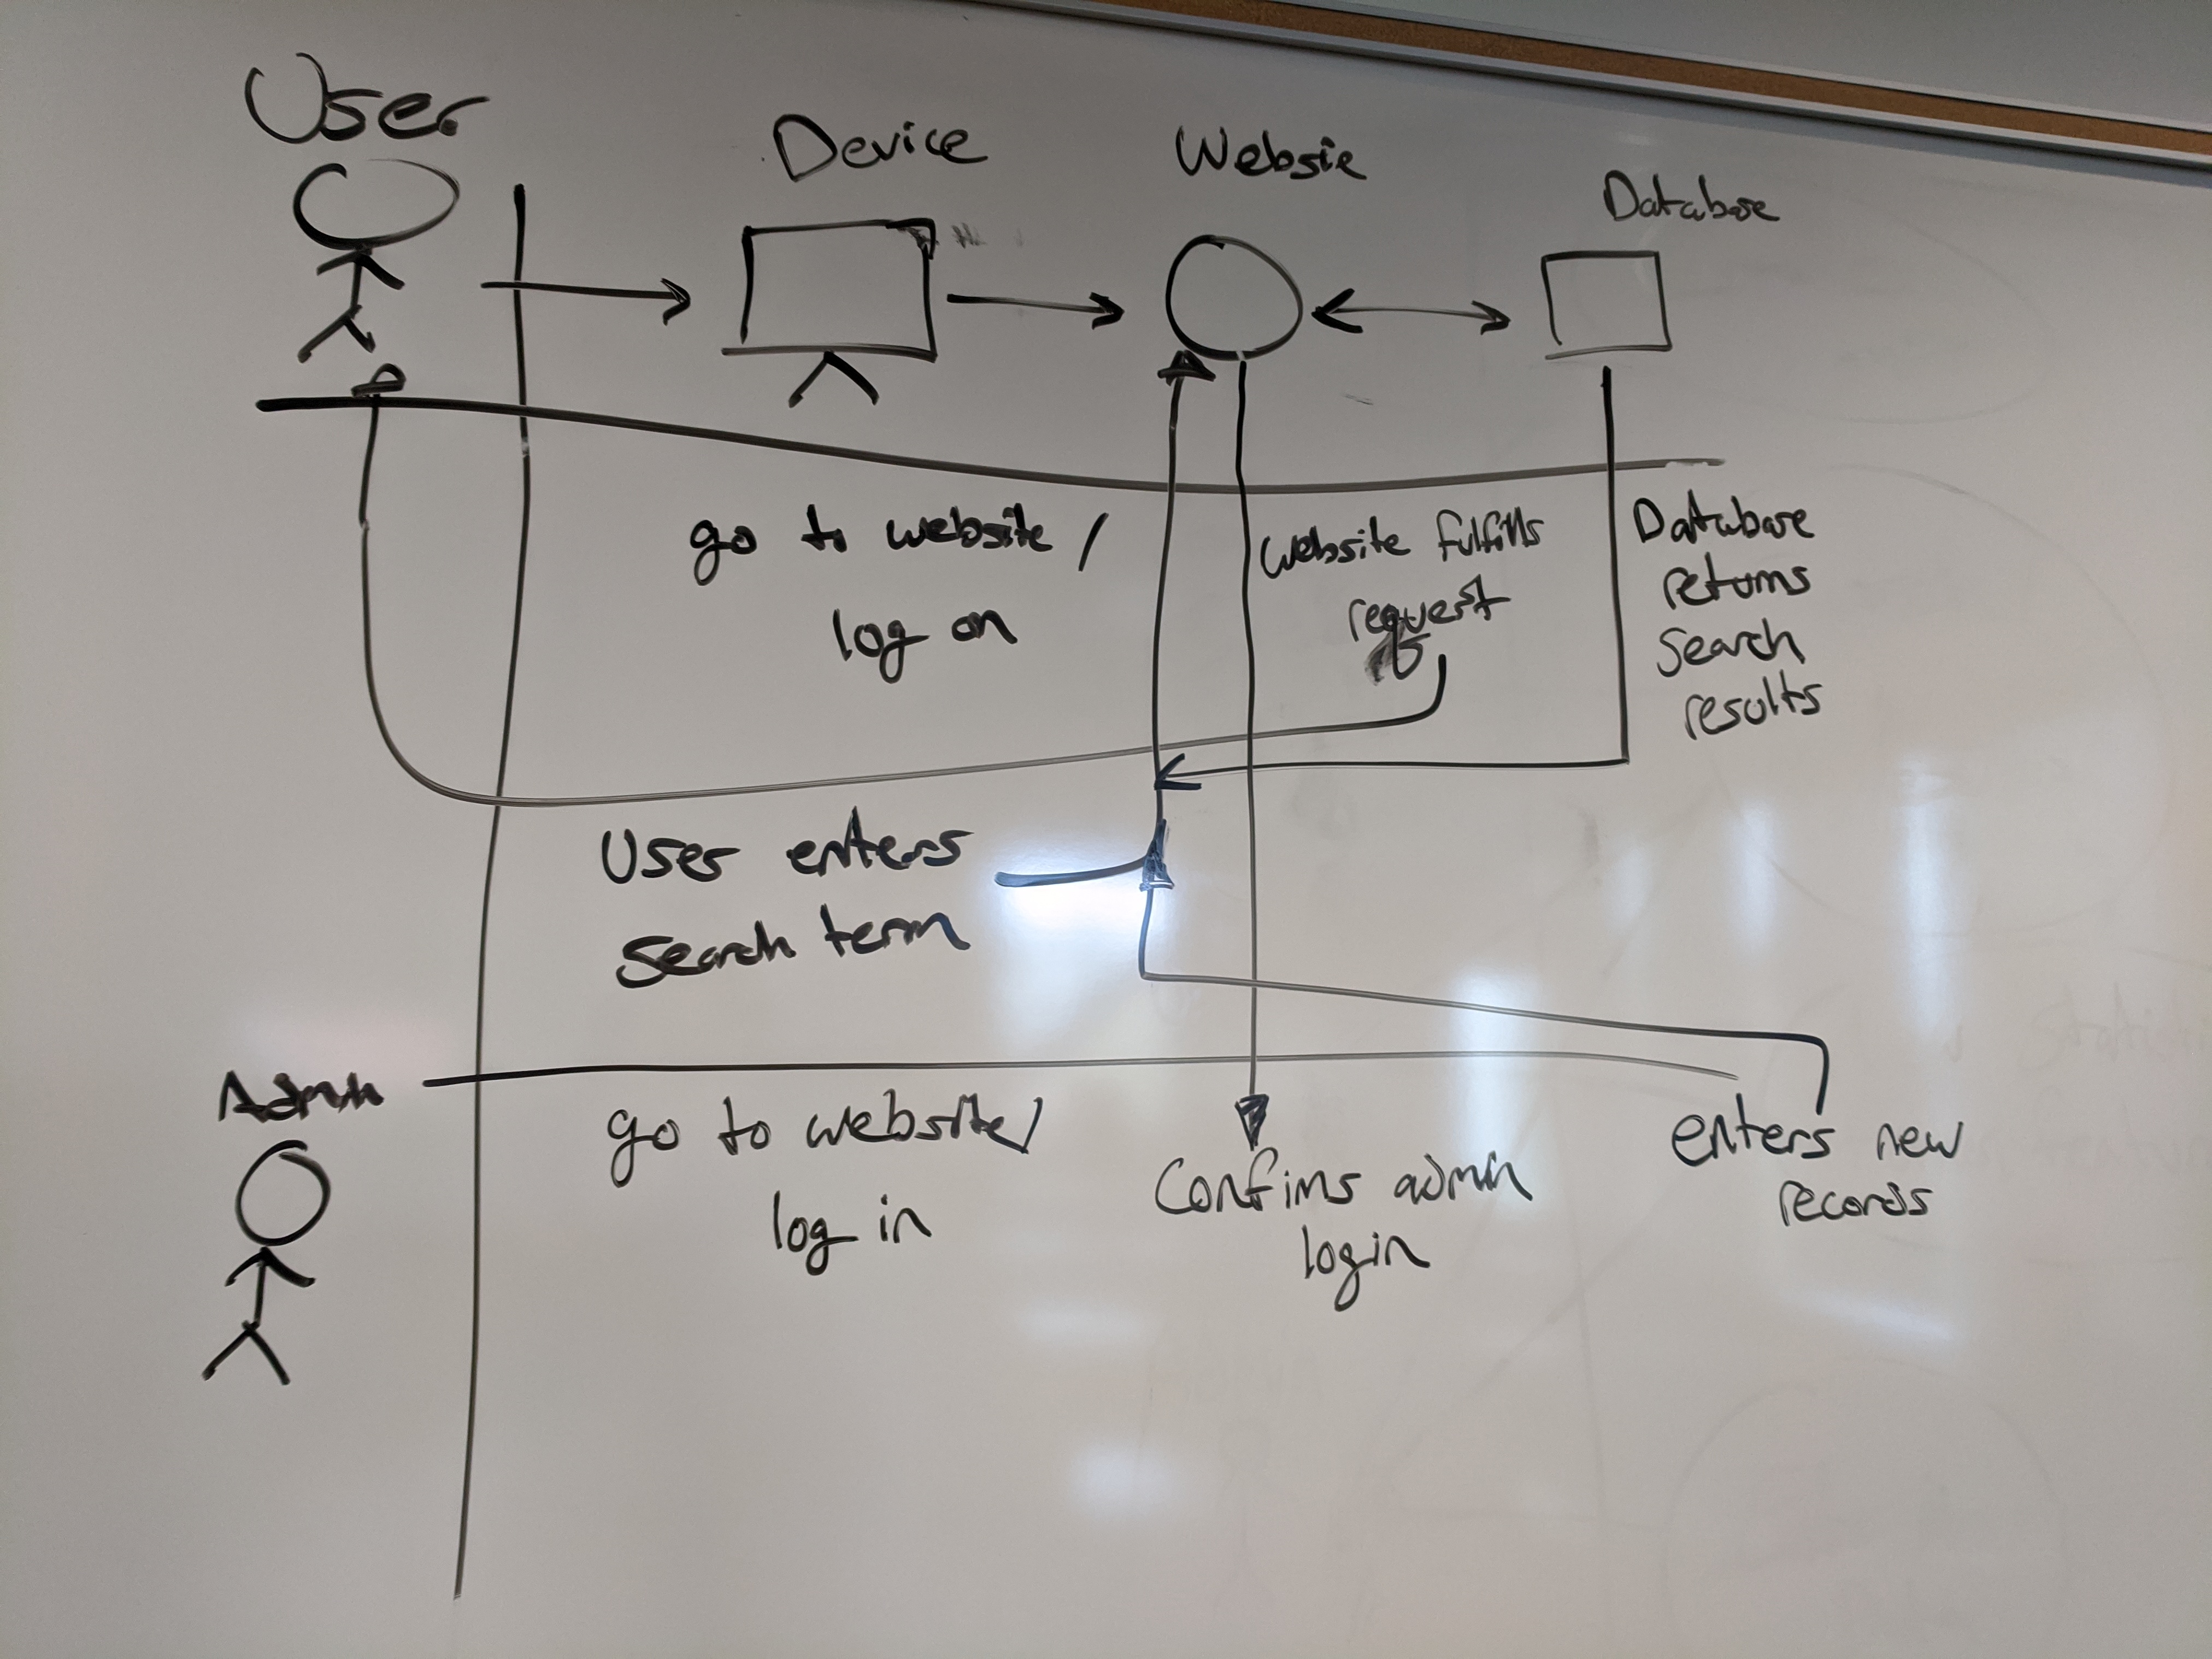 User
Device
Websie
Database
go to website /
log on
website fulfills
request
Database
returns
search
results
User enters
search term
Admin
go to website/
log in
Confims admin
login
enters new
records